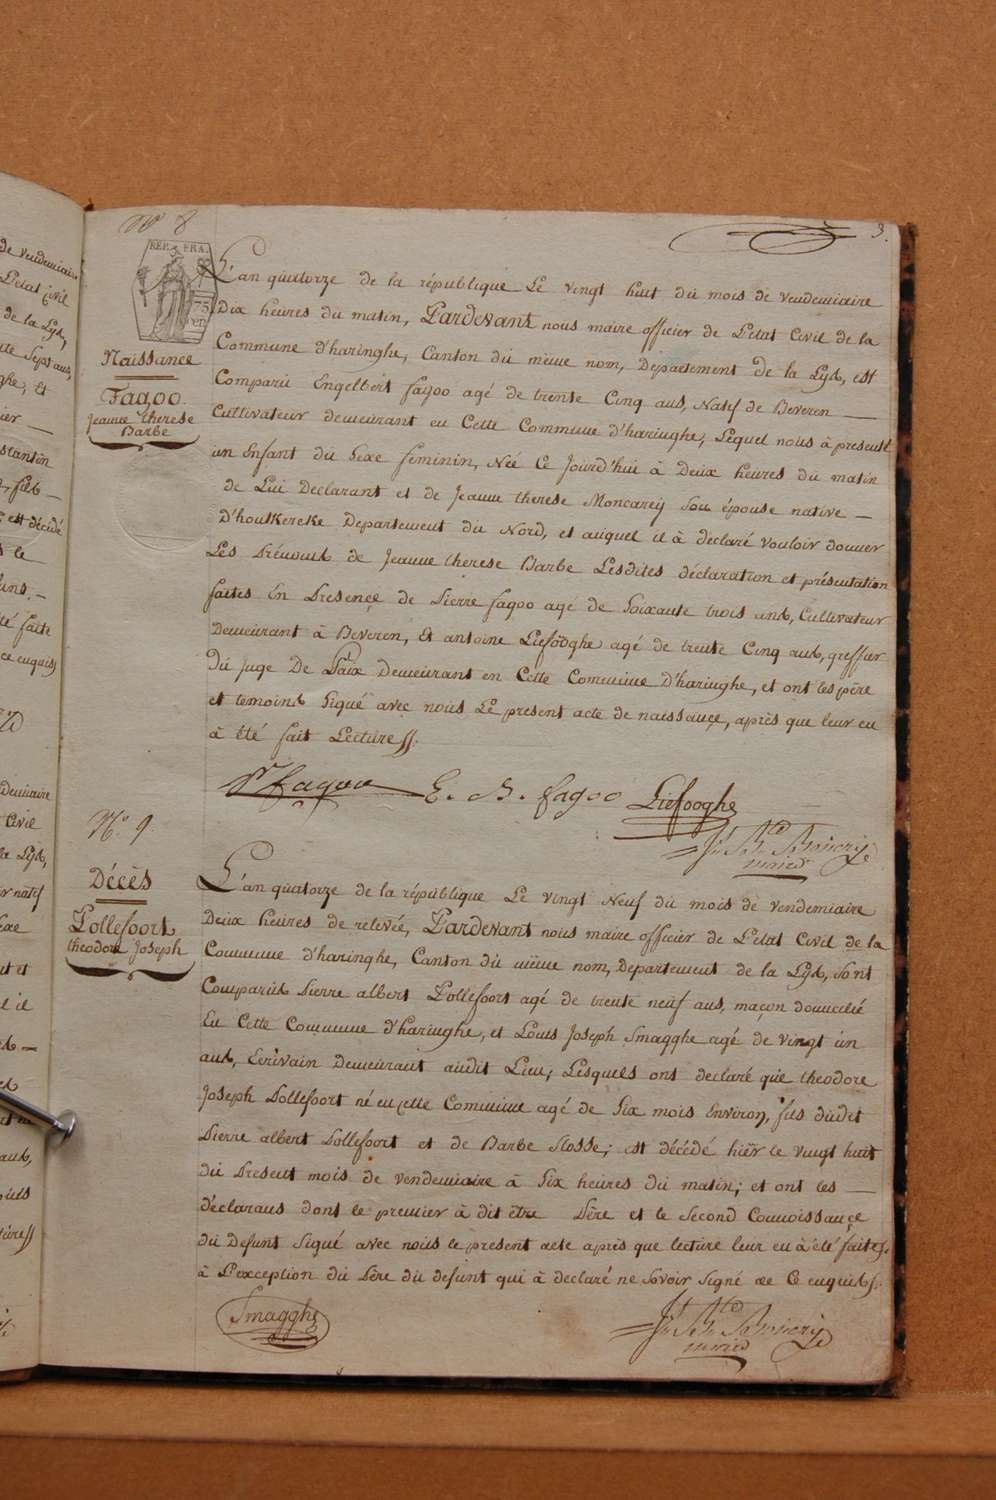 N° 8
3.
REP. FRA.
75
Naissance
Fagoo.
Jeanne therese
Barbe
L'an quatorze de la république Le vingt huit du mois de vendemiaire
Dix heures du matin, Pardevant nous maire officier de L'etat Civil de la
Commune d'haringhe, Canton du même nom, Département de la Lys, est
Comparu Engelbert fagoo agé de trente Cinq ans, Natif de Beveren —
Cultivateur demeurant en Cette Commune d'haringhe, Lequel nous à presenté
un Enfant du Sexe feminin, Née Ce Jourd'hui à Deux heures du matin
de Lui Declarant et de Jeanne therese Moncarey Son épouse native —
D'houtkereke Departement du Nord, et auquel il à declaré vouloir donner
Les Prénoms de Jeanne therese Barbe Lesdites déclaration et présentation
faites En Presençe de Pierre fagoo agé de Soixante trois ans, Cultivateur
Demeurant à Beveren, Et antoine Liefooghe agé de trente Cinq ans, greffier
Du juge De Paix Demeurant en Cette Commune D'haringhe, et ont les père
et temoins Signé avec nous Le present acte de naissançe, après que leur en
à été fait Lecture //.
P. fagoo E. B. fagoo Liefooghe
maire
N.° 9
Décès
Pollefoort
theodore Joseph
L'an quatorze de la république Le vingt Neuf du mois de vendemiaire
Deux heures de relevée, Pardevant nous maire officier de L'etat Civil de la
Commune d'haringhe, Canton du même nom, Departement de la Lys, Sont
Comparus Pierre albert Pollefoort agé de trente neuf ans, maçon domicilié
En Cette Commune d'haringhe, et Louis Joseph Smagghe agé de vingt un
ans, Ecrivain Demeurant audit Lieu; Lesquels ont declaré que theodore
Joseph Pollefoort né en cette Commune agé de Six mois Environ, fils dudit
Pierre albert Pollefoort et de Barbe Slosse; est décédé hier le vingt huit
du Present mois de vendemiaire à Six heures du matin; et ont les —
déclarans dont le premier à dit être Père et le Second Connoissançe
du Defunt Signé avec nous le present acte après que lecture leur en à été faite,
à L'exception du Père du defunt qui à declaré ne Savoir Signé de Ce enquis.
Smagghe
maire